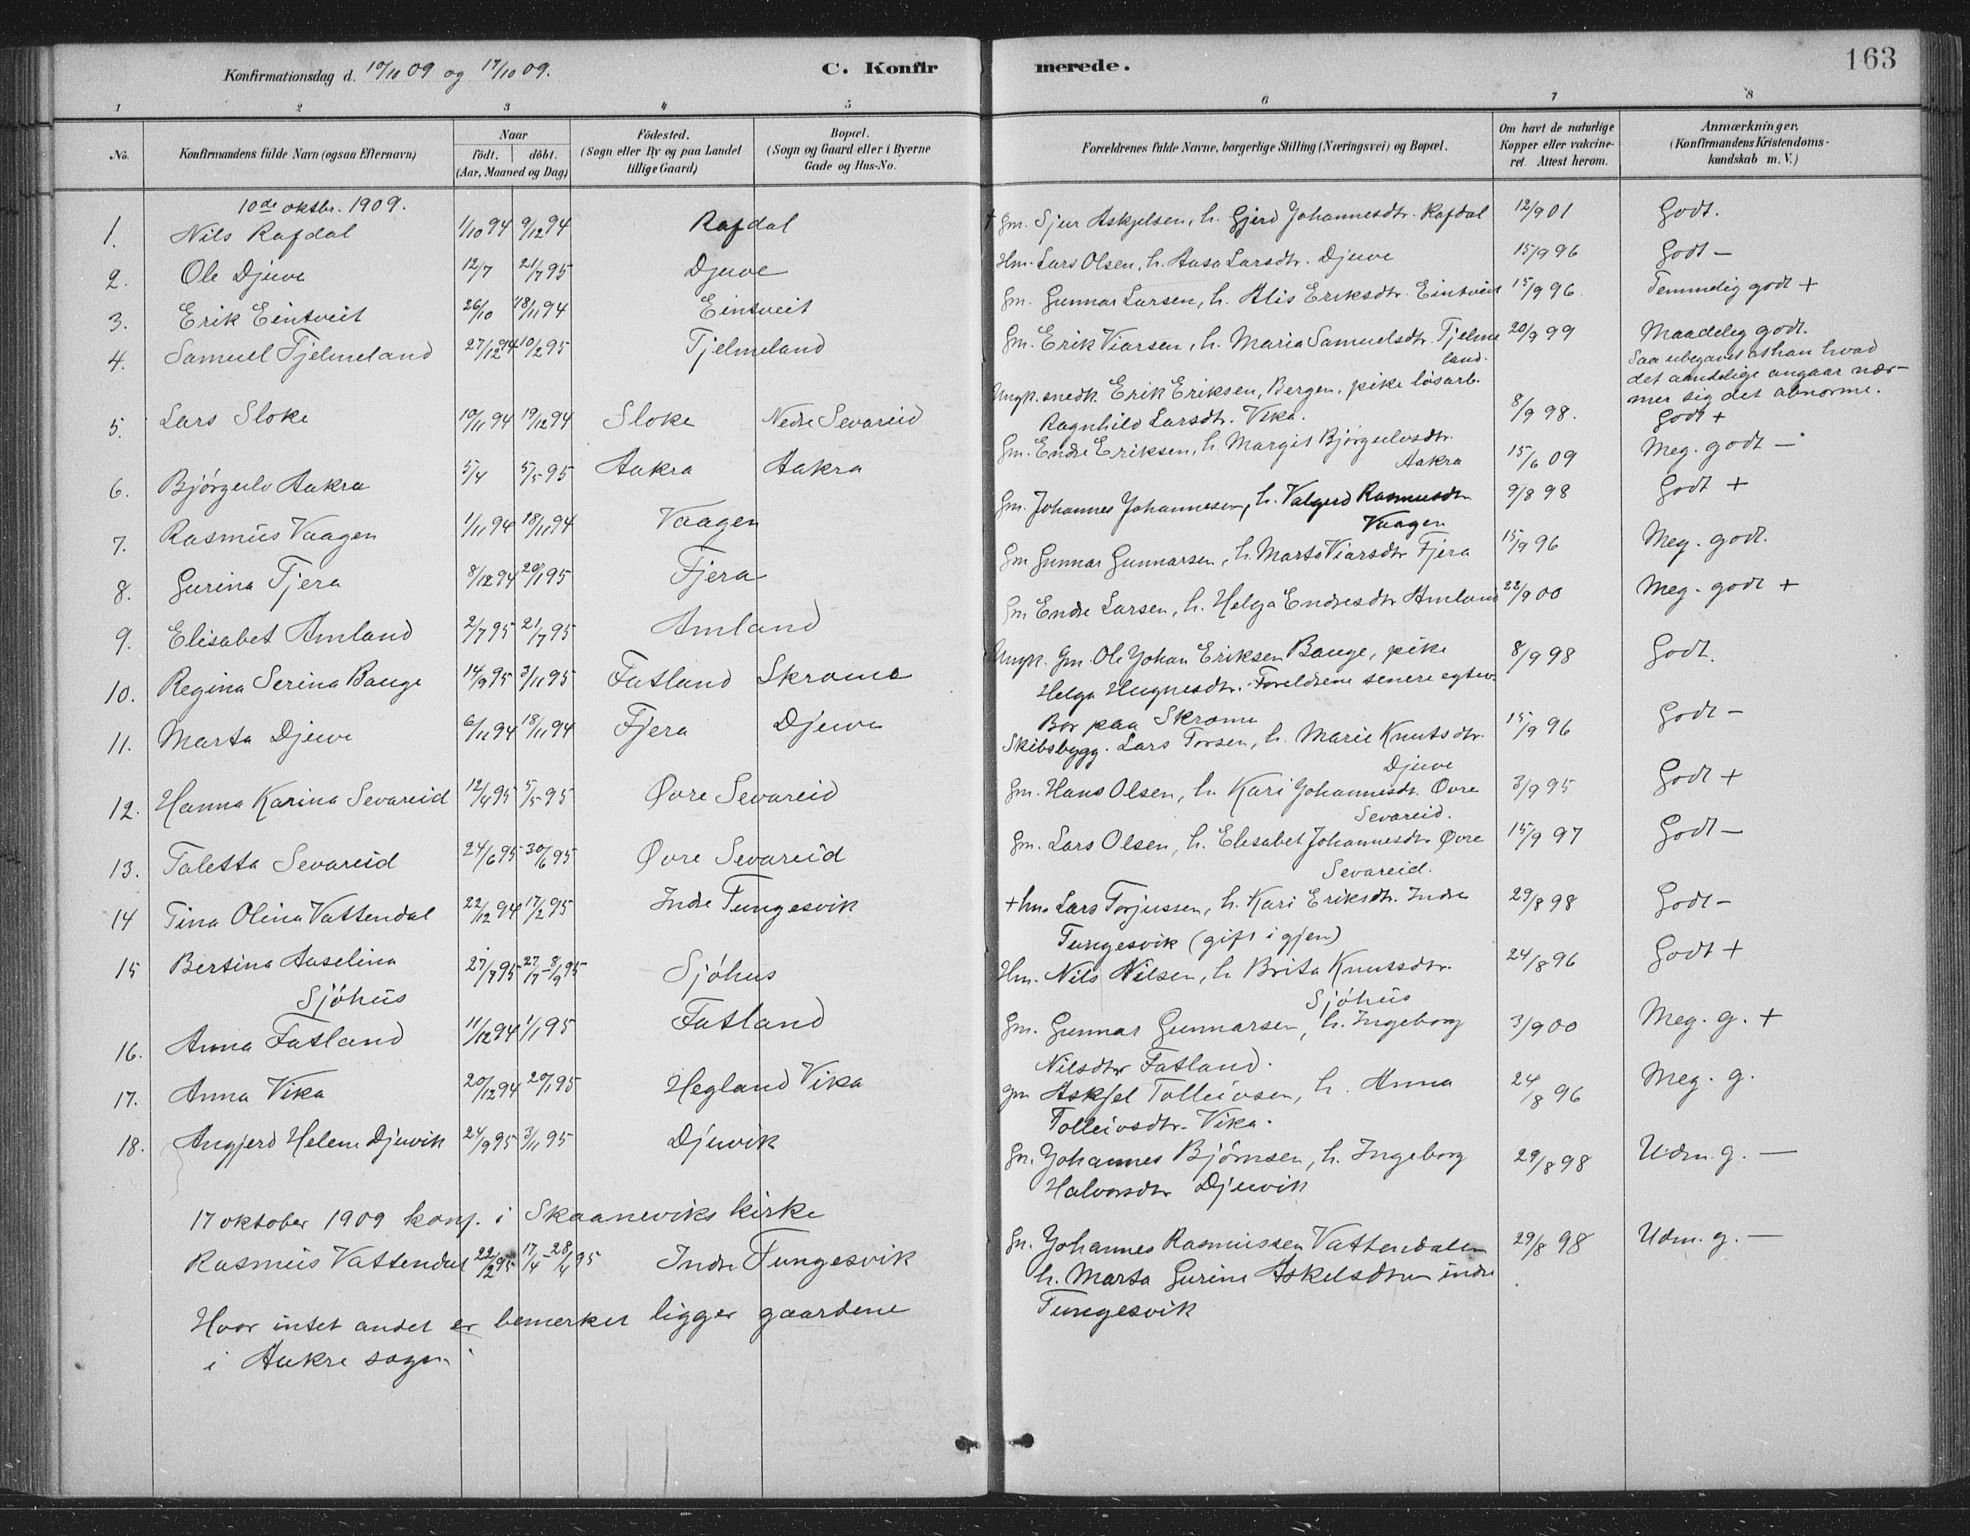 Konfirmationsdag d. 10/10 09 og 17/10 09.
C. Konfirmerede.
163
1 2 3 4 5 6 7 8
No.
Konfirmandens fulde Navn (ogsaa Efternavn)
Naar
født. | döbt.
(Aar, Maaned og Dag)
Födested.
(Sogn eller By og paa Landet
tillige Gaard)
Bopæl.
(Sogn og Gaard eller i Byerne
Gade og Hus-No.
Forældrenes fulde Navne, borgerlige Stilling (Næringsvei) og Bopæl.
Om havt de naturlige
Kopper eller vakcine-
ret Attest herom.
Anmærkninger.
(Konfirmandens Kristendoms-
kundskab m. V.)
10de oktbr. 1909.
1. Nils Rafdal 1/10 94 9/12 94 Rafdal + Gm. Sjur Askjelsen, h. Gjerd Johannesdtr. Rafdal 12/9 01 Godt.
2. Ole Djuve 12/7 21/7 95 Djuve Hm. Lars Olsen, h. Aasa Larsdtr. Djuve 15/9 96 Godt –
3. Erik Eintveit 26/10 18/11 94 Eintveit Gm. Gunnar Larsen, h. Alis Eriksdtr. Eintveit 15/9 96 Temmelig godt +
4. Samuel Tjelmeland 27/12 94 10/2 95 Tjelmeland Gm. Erik Viarsen, h. Maria Samuelsdtr. Tjelme
land. 20/9 99 Maadelig godt.
Saa ubegavet at han hvad
det aandelige angaar nær-
mer sig det abnorme.
5. Lars Sloke 10/11 94 19/12 94 Sloke Nedre Sevareid Ungk. snedk. Erik Eriksen, Bergen, pike lösarb.
Ragnhild Larsdtr. Vika. 8/9 98. Godt +
6. Bjørgulv Aakra 5/4 5/5 95 Aakra Aakra Gm. Endre Eriksen, h. Margit Bjørgulvsdtr.
Aakra 15/6 09 Meg. godt –
7. Rasmus Vaagen 1/11 94 18/11 94 Vaagen Gm. Johannes Johannesen, h. Valgerd Rasmusdtr
Vaagen 9/8 98 Godt +
8. Gurina Fjera 8/12 94 20/1 95 Fjera Gm Gunnar Gunnarsen, h. Marta Viarsdtr Fjera 15/9 96 Meg. godt.
9. Elisabet Amland 2/7 95 21/7 95 Amland Gm Endre Larsen, h. Helga Endresdtr Amland 22/9 00 Meg. godt +
10. Regina Serina Bauge 14/9 95 3/11 95 Fatland Skromo Ungk. Gm. Ole Johan Eriksen Bauge, pike
Helga Hugnesdtr. Foreldrene senere egtev.
Bor paa Skromo 8/9 98 Godt.
11. Marta Djuve 6/11 94 18/11 94 Fjera Djuve Skibsbygg. Lars Torsen, h. Marie Knutsdtr.
Djuve 15/9 96 Godt –
12. Hanna Karina Sevareid 12/4 95 5/5 95 Øvre Sevareid Gm. Hans Olsen, h. Kari Johannesdtr. Øvre
Sevareid. 3/9 95 Godt +
13. Taletta Sevareid 24/6 95 30/6 95 Øvre Sevareid Gm. Lars Olsen, h. Elisabet Johannesdtr Øvre
Sevareid. 15/9 97 Godt –
14 Tina Olina Vattendal 22/12 94 17/2 95 Indre Tungesvik + hm. Lars Torjussen, h. Kari Eriksdtr. Indre
Tungesvik (gift igjen) 29/8 98 Godt –
15 Bertina Aaselina
Sjöhus 27/7 95 27/7 – 8/9 95 Sjöhus Hm. Nils Nilsen, h Brita Knutsdtr.
Sjöhus 24/8 96 Godt +
16. Anna Fatland 11/12 94 1/1 95 Fatland Gm. Gunnar Gunnarsen, h. Ingeborg
Nilsdtr Fatland. 3/9 00 Meg. g. +
17. Anna Vika 20/12 94 20/1 95 Hegland Vika Gm Askjel Tolleivsen, h. Anna
Tolleivsdtr. Vika. 24/8 96 Meg. g.
18. Angjerd Helene Djuvik 24/9 95 3/11 95 Djuvik Gm. Johannes Bjørnsen, h. Ingeborg
Halvorsdtr Djuvik 29/8 98 Udm. g. –
17 oktober 1909 konf. i Skaaneviks kirke
Rasmus Vattendal 22/2 95 17/4 – 28/4 95 Indre Tungesvik Gm. Johannes Rasmussen Vattendalen
h. Marta Gurine Askelsdtr indre
Tungesvik 29/8 98 Udm. g. –
Hvor intet andet er bemerket ligger gaardene
i Aakre sogn.